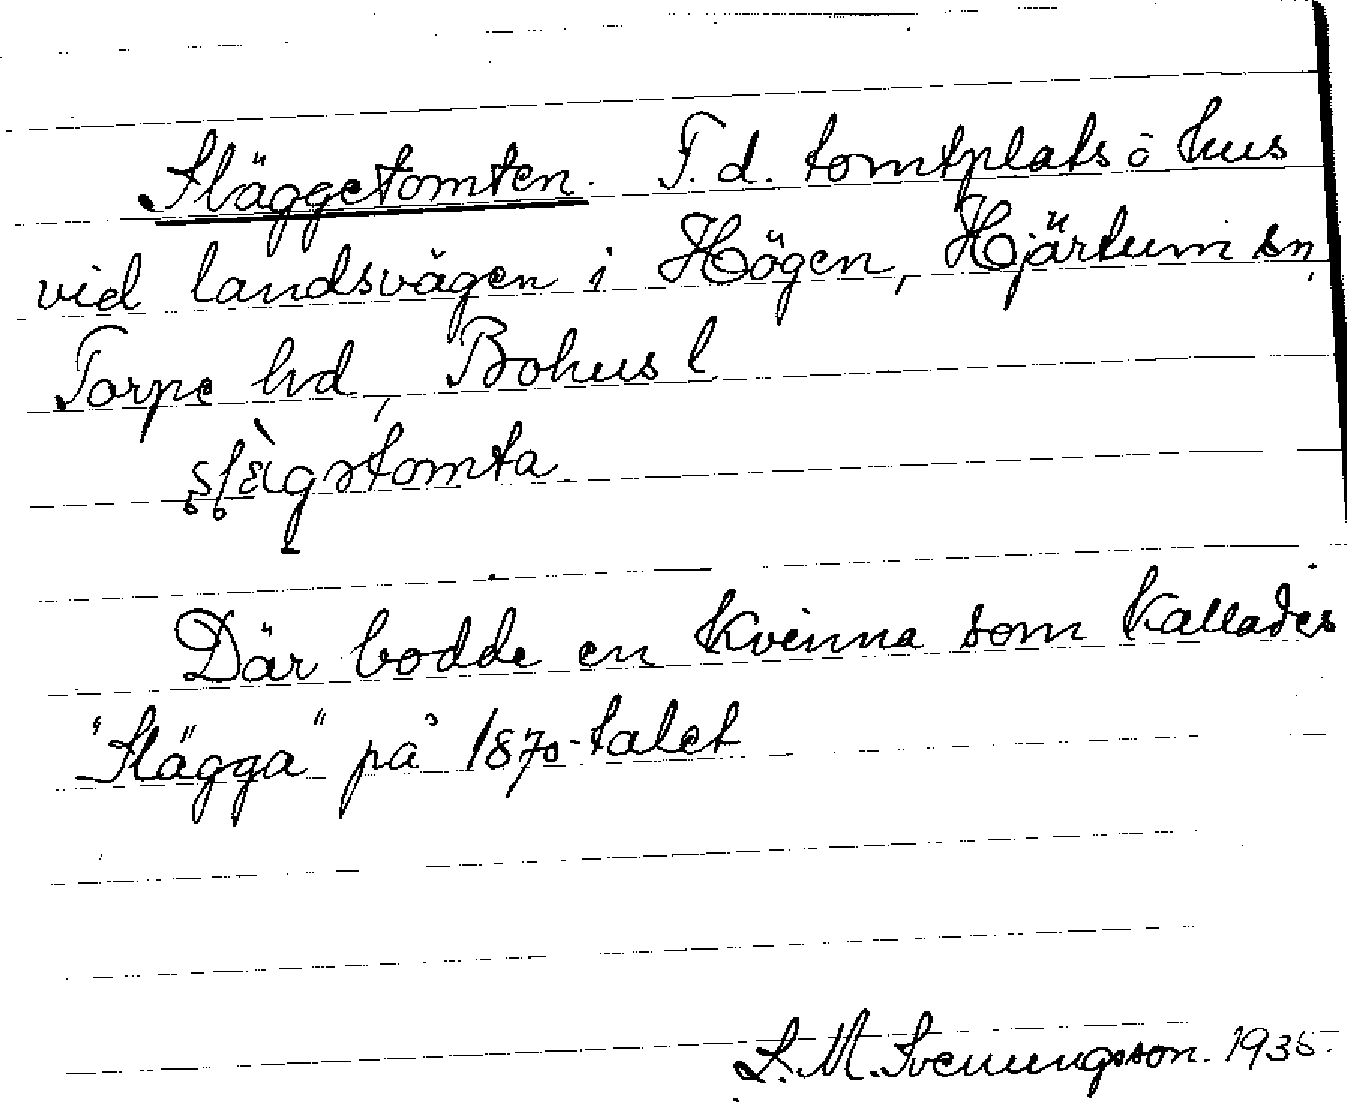 Släggetomten. F.d. tomtplats ö hus
vid landsvägen i Högen, Hjärtum sn,
Torpe hd, Bohus l
Där bodde en kvinna som kallades
"Slägga" på 1870-talet
S. M. Svenungsson. 1935.